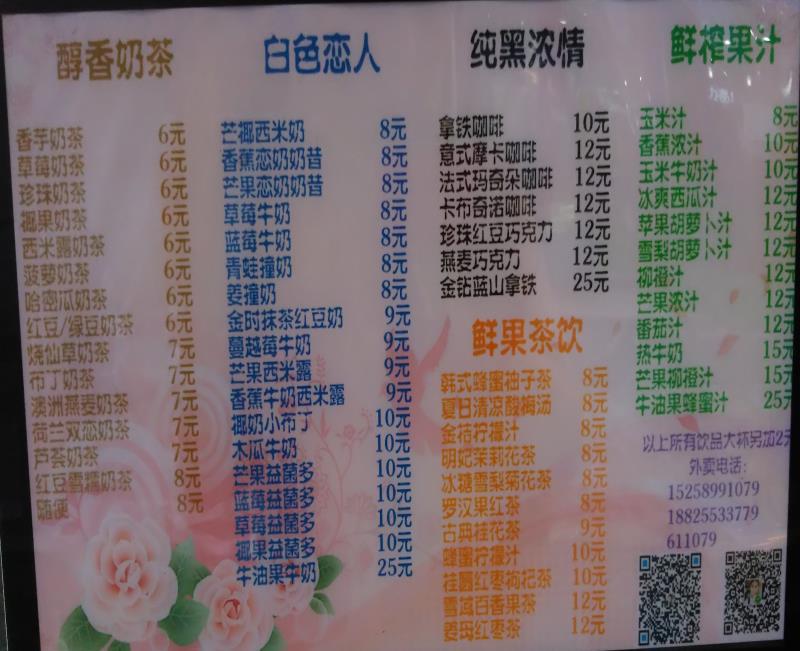 醇香奶茶
香芋奶茶 6元
草莓奶茶 6元
珍珠奶茶 6元
椰果奶茶 6元
西米露奶茶 6元
菠萝奶茶 6元
哈密瓜奶茶 6元
红豆/绿豆奶茶 6元
烧仙草奶茶 7元
布丁奶茶 7元
澳洲燕麦奶茶 7元
荷兰双恋奶茶 7元
芦荟奶茶 7元
红豆雪糯奶茶 8元
随便 8元
白色恋人
芒椰西米奶 8元
香蕉恋奶奶昔 8元
芒果恋奶奶昔 8元
草莓牛奶 8元
蓝莓牛奶 8元
青蛙撞奶 8元
姜撞奶 8元
金时抹茶红豆奶 9元
蔓越莓牛奶 9元
芒果西米露 9元
香蕉牛奶西米露 9元
椰奶小布丁 10元
木瓜牛奶 10元
芒果益菌多 10元
蓝莓益菌多 10元
草莓益菌多 10元
椰果益菌多 10元
牛油果牛奶 25元
纯黑浓情
拿铁咖啡 10元
意式摩卡咖啡 12元
法式玛奇朵咖啡 12元
卡布奇诺咖啡 12元
珍珠红豆巧克力 12元
燕麦巧克力 12元
金钻蓝山拿铁 25元
鲜果茶饮
韩式蜂蜜柚子茶 8元
夏日清凉酸梅汤 8元
金桔柠檬汁 8元
明妃茉莉花茶 8元
冰糖雪梨菊花茶 8元
罗汉果红茶 8元
古典桂花茶 9元
蜂蜜柠檬汁 10元
桂圆红枣枸杞茶 10元
雪域百香果茶 12元
姜母红枣茶 12元
鲜榨果汁
玉米汁 8元
香蕉浓汁 10元
玉米牛奶汁 10元
冰爽西瓜汁 12元
苹果胡萝卜汁 12元
雪梨胡萝卜汁 12元
柳橙汁 12元
芒果浓汁 12元
番茄汁 12元
热牛奶 15元
芒果柳橙汁 15元
牛油果蜂蜜汁 25元
以上所有饮品大杯另加2元
外卖电话：
15258991079
18825533779
611079